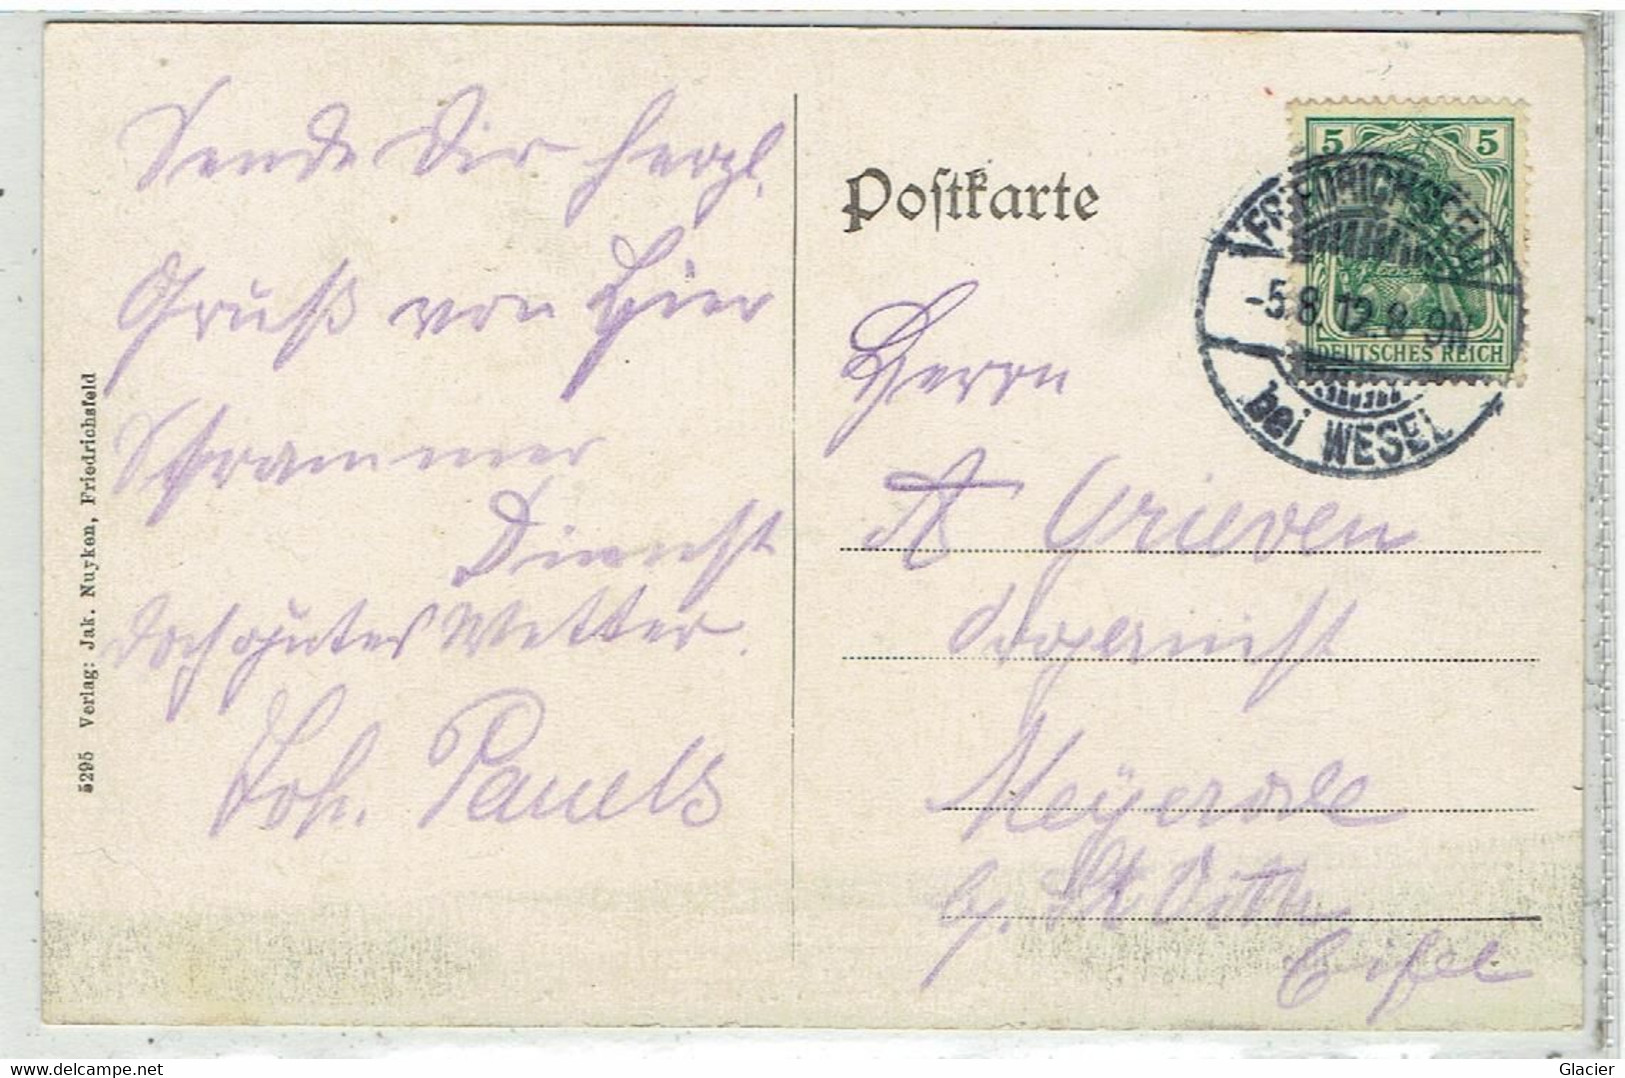 Sende Dir herzl.
Gruß von hier
Strammer
Dienst
doch gutes Wetter.
Joh. Pauels
5295 Verlag: Jak. Nuyken, Friedrichsfeld
Postkarte
5 5
DEUTSCHES REICH
FRIEDRICHSFELD
-5.8.12.8-9N
bei WESEL
Herrn
A Grieven
Organist
Meyerode
b/. St Vith
Eifel
Glacier